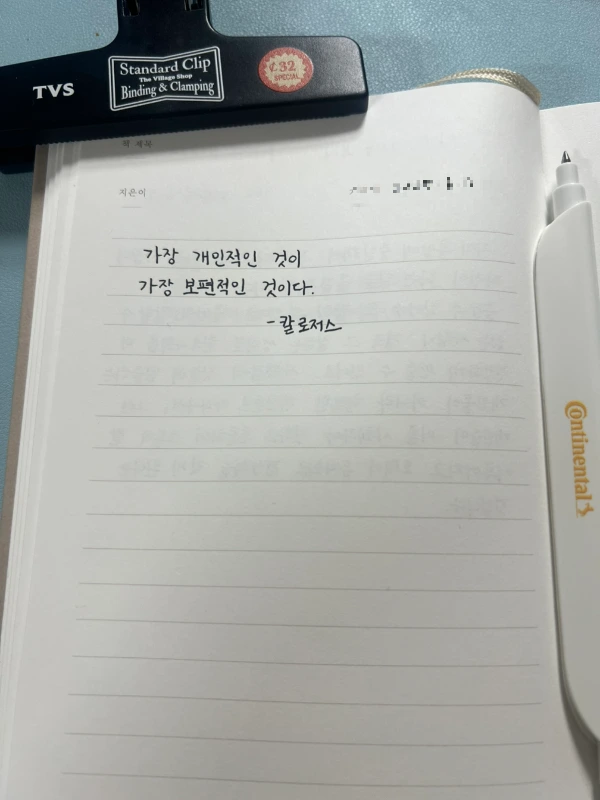 Standard Clip
The Village Shop
Binding & Clamping
TVS
₡32
SPECIAL
책 제목
지은이
가장 개인적인 것이
가장 보편적인 것이다.
- 칼로저스
Continental